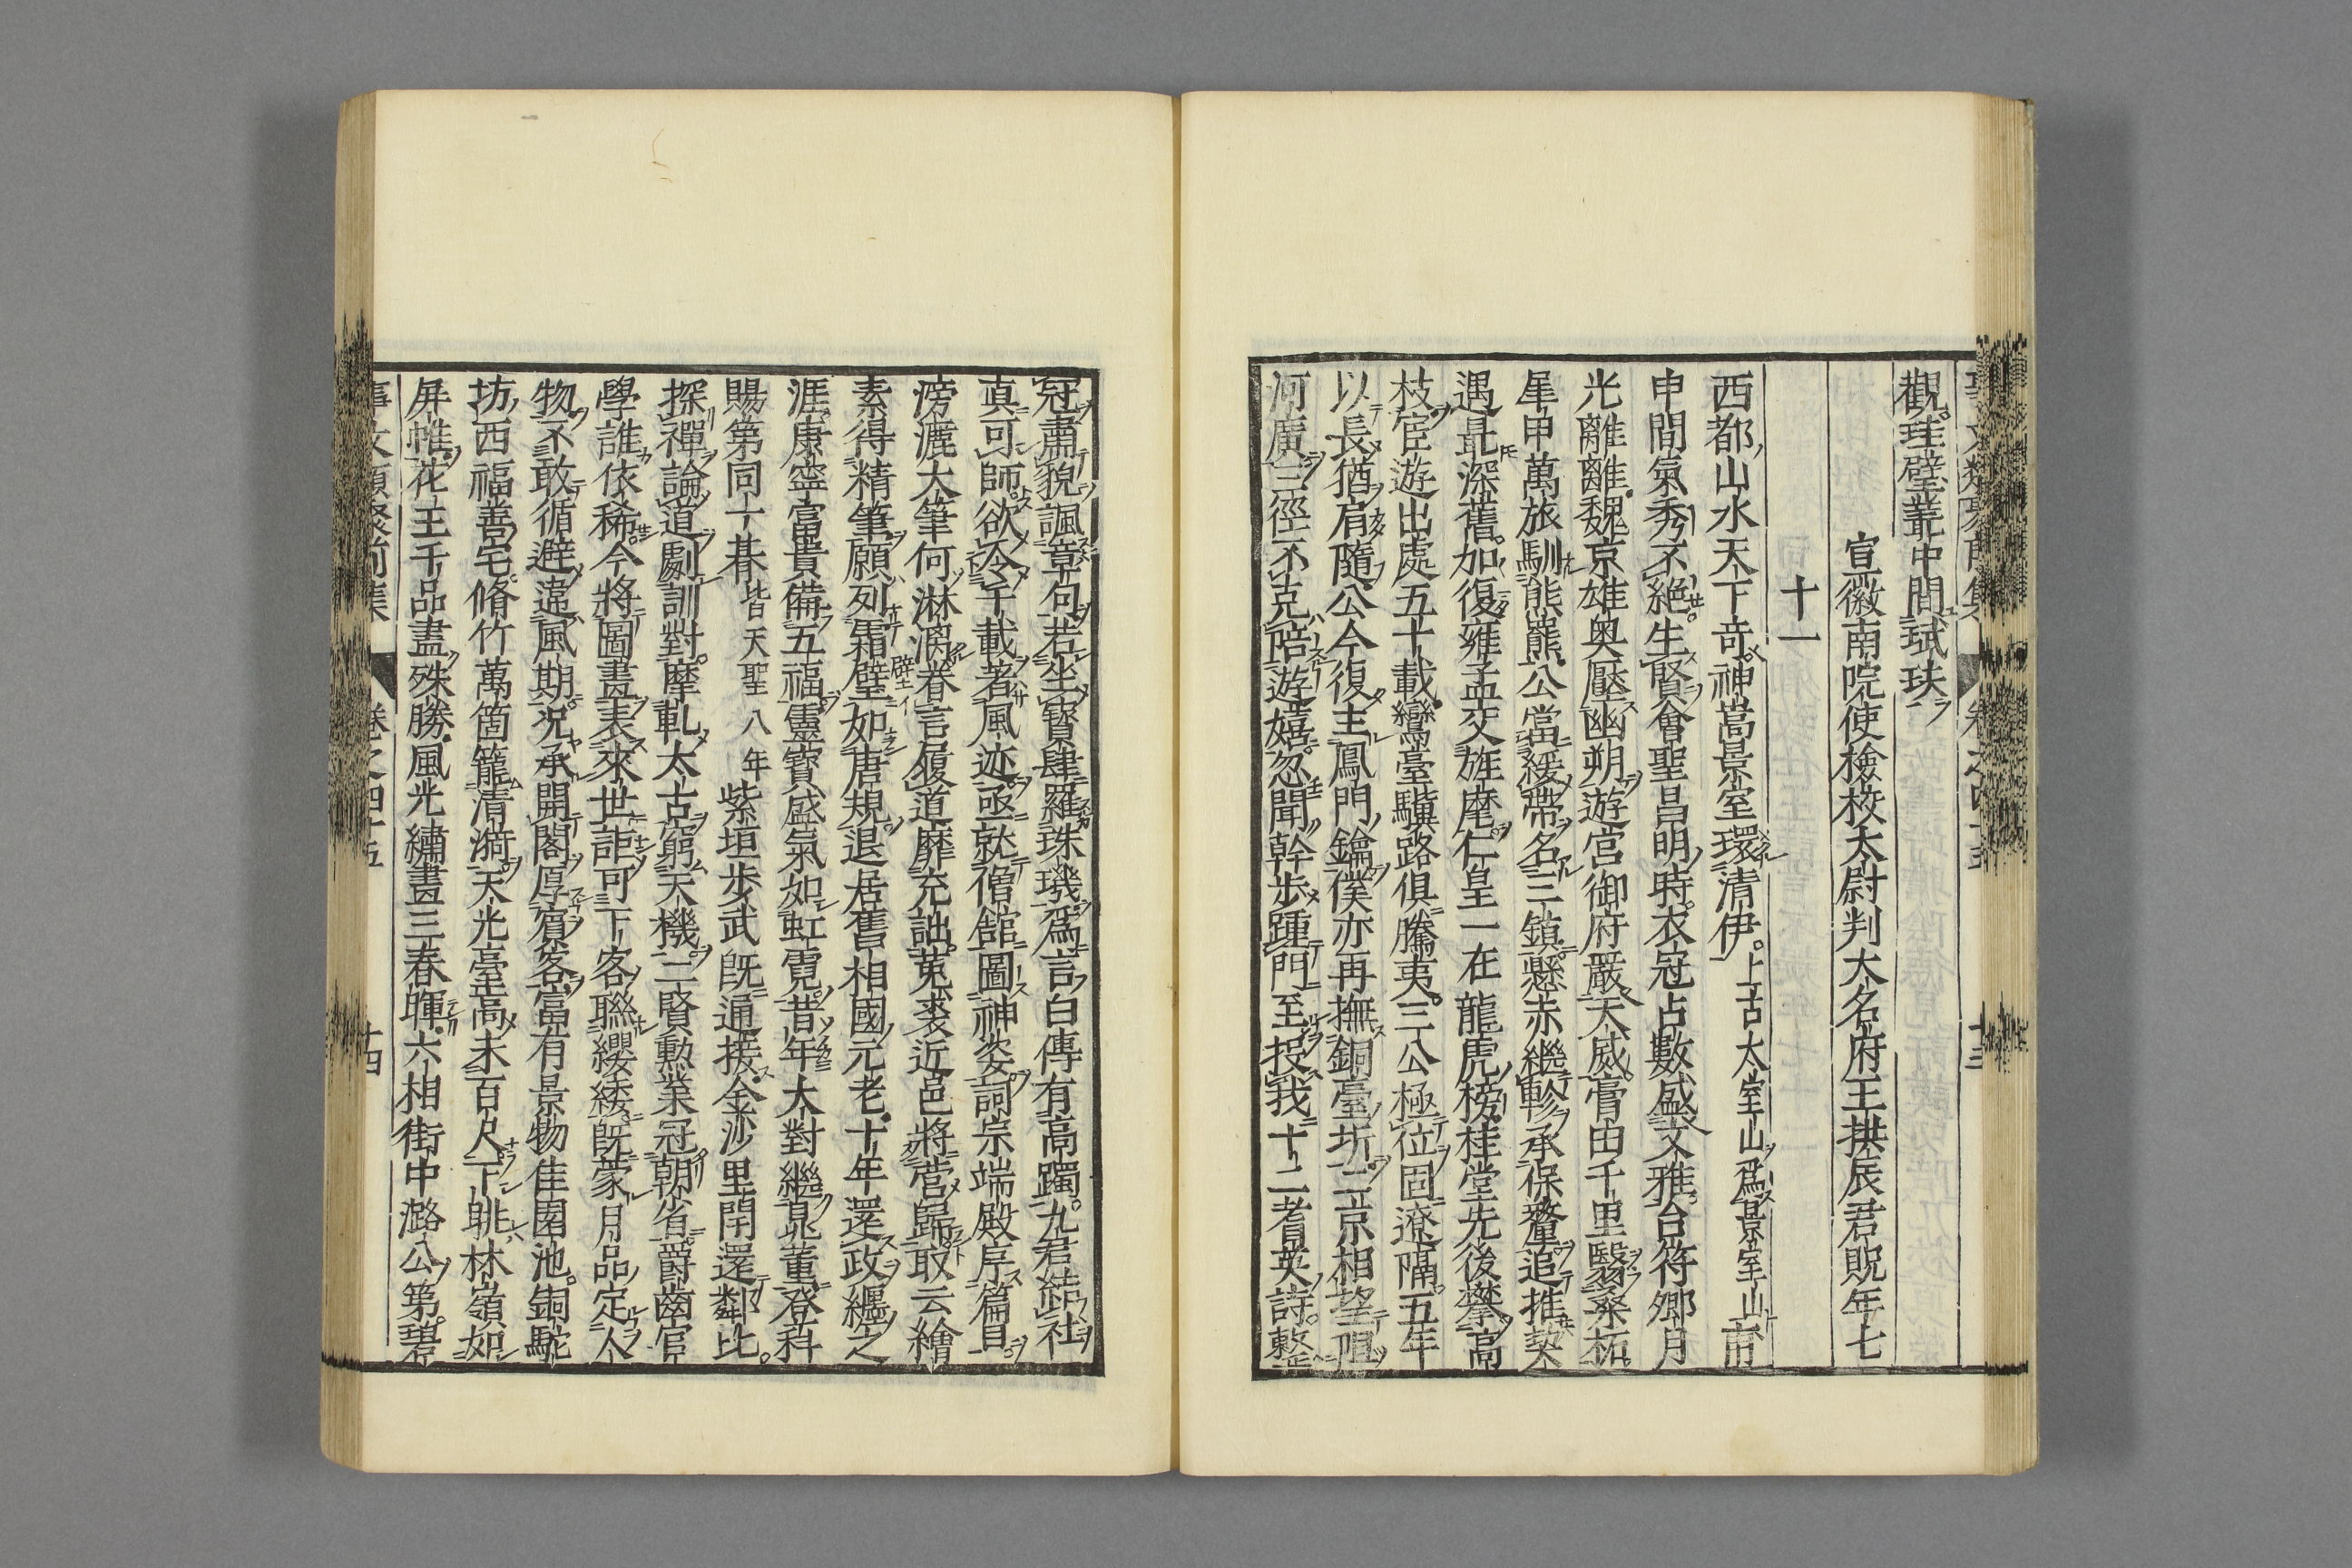 觀珪璧叢中間珷玞
宣徽南院使檢校太尉判大名府王拱辰君貺年七
十一
西都山水天下竒神嵩景室環清伊上古太室山爲景室山甫
申間氣秀不絶生賢會聖昌明時衣冠占數盛文雅台符郷月
光離離魏京雄奥壓幽朔遊宫御府嚴天威膏田千里翳桑柘
犀甲萬旅馴熊羆公當緩帶名三鎮懸赤繼軫承保釐追推契
遇最深舊加復雍孟交旌麾仁皇一在龍虎榜桂堂先後攀高
枝宦遊出處五十載鸞臺驥路俱騰夷三公極位固遼隔五年
以長猶肩隨公今復主鳳門鑰僕亦再撫銅臺圻二京相望阻
河廣三徑不克陪遊嬉忽聞幹歩踵門至投我十二耆英詩整
冠肅貌諷章句若坐寳肆羅珠璣爲言白傳有高躅九君結社
真可師欲令千載著風迹亟就僧舘圖神姿詞宗端殿序篇目
滂灑大筆何淋漓眷言履道靡充詘菟裘近邑將營歸取云繪
素得精筆願列霜璧如唐規退居舊相國元老十年還政纒之
涯康寧富貴備五福靈寳盛氣如虹霓昔年大對繼晁董登科
賜第同十朞皆天聖八年紫垣歩武既通接金沙里閈還鄰比
探禪論道劇訓對摩軋太古窮天機二賢勲業冠朝省爵齒官
學誰依稀今將圖晝表來世詎可下客聮纓緌既蒙月品定人
物不敢循避違風期况承開閣厚賓客富有景物佳園池銅駝
坊西福善宅脩竹萬箇籠清漪天光臺高未百尺下眺林嶺如
屏帷花王千品盡殊勝風光繡晝三春暉六相街中潞公第碧
事文類聚前集
卷之四十五
十四